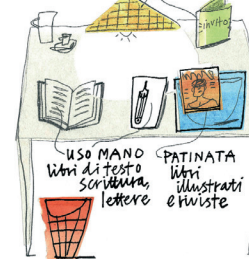 invito
USO MANO
libri di testo
scrittura,
lettere
PATINATA
libri
illustrati
e riviste